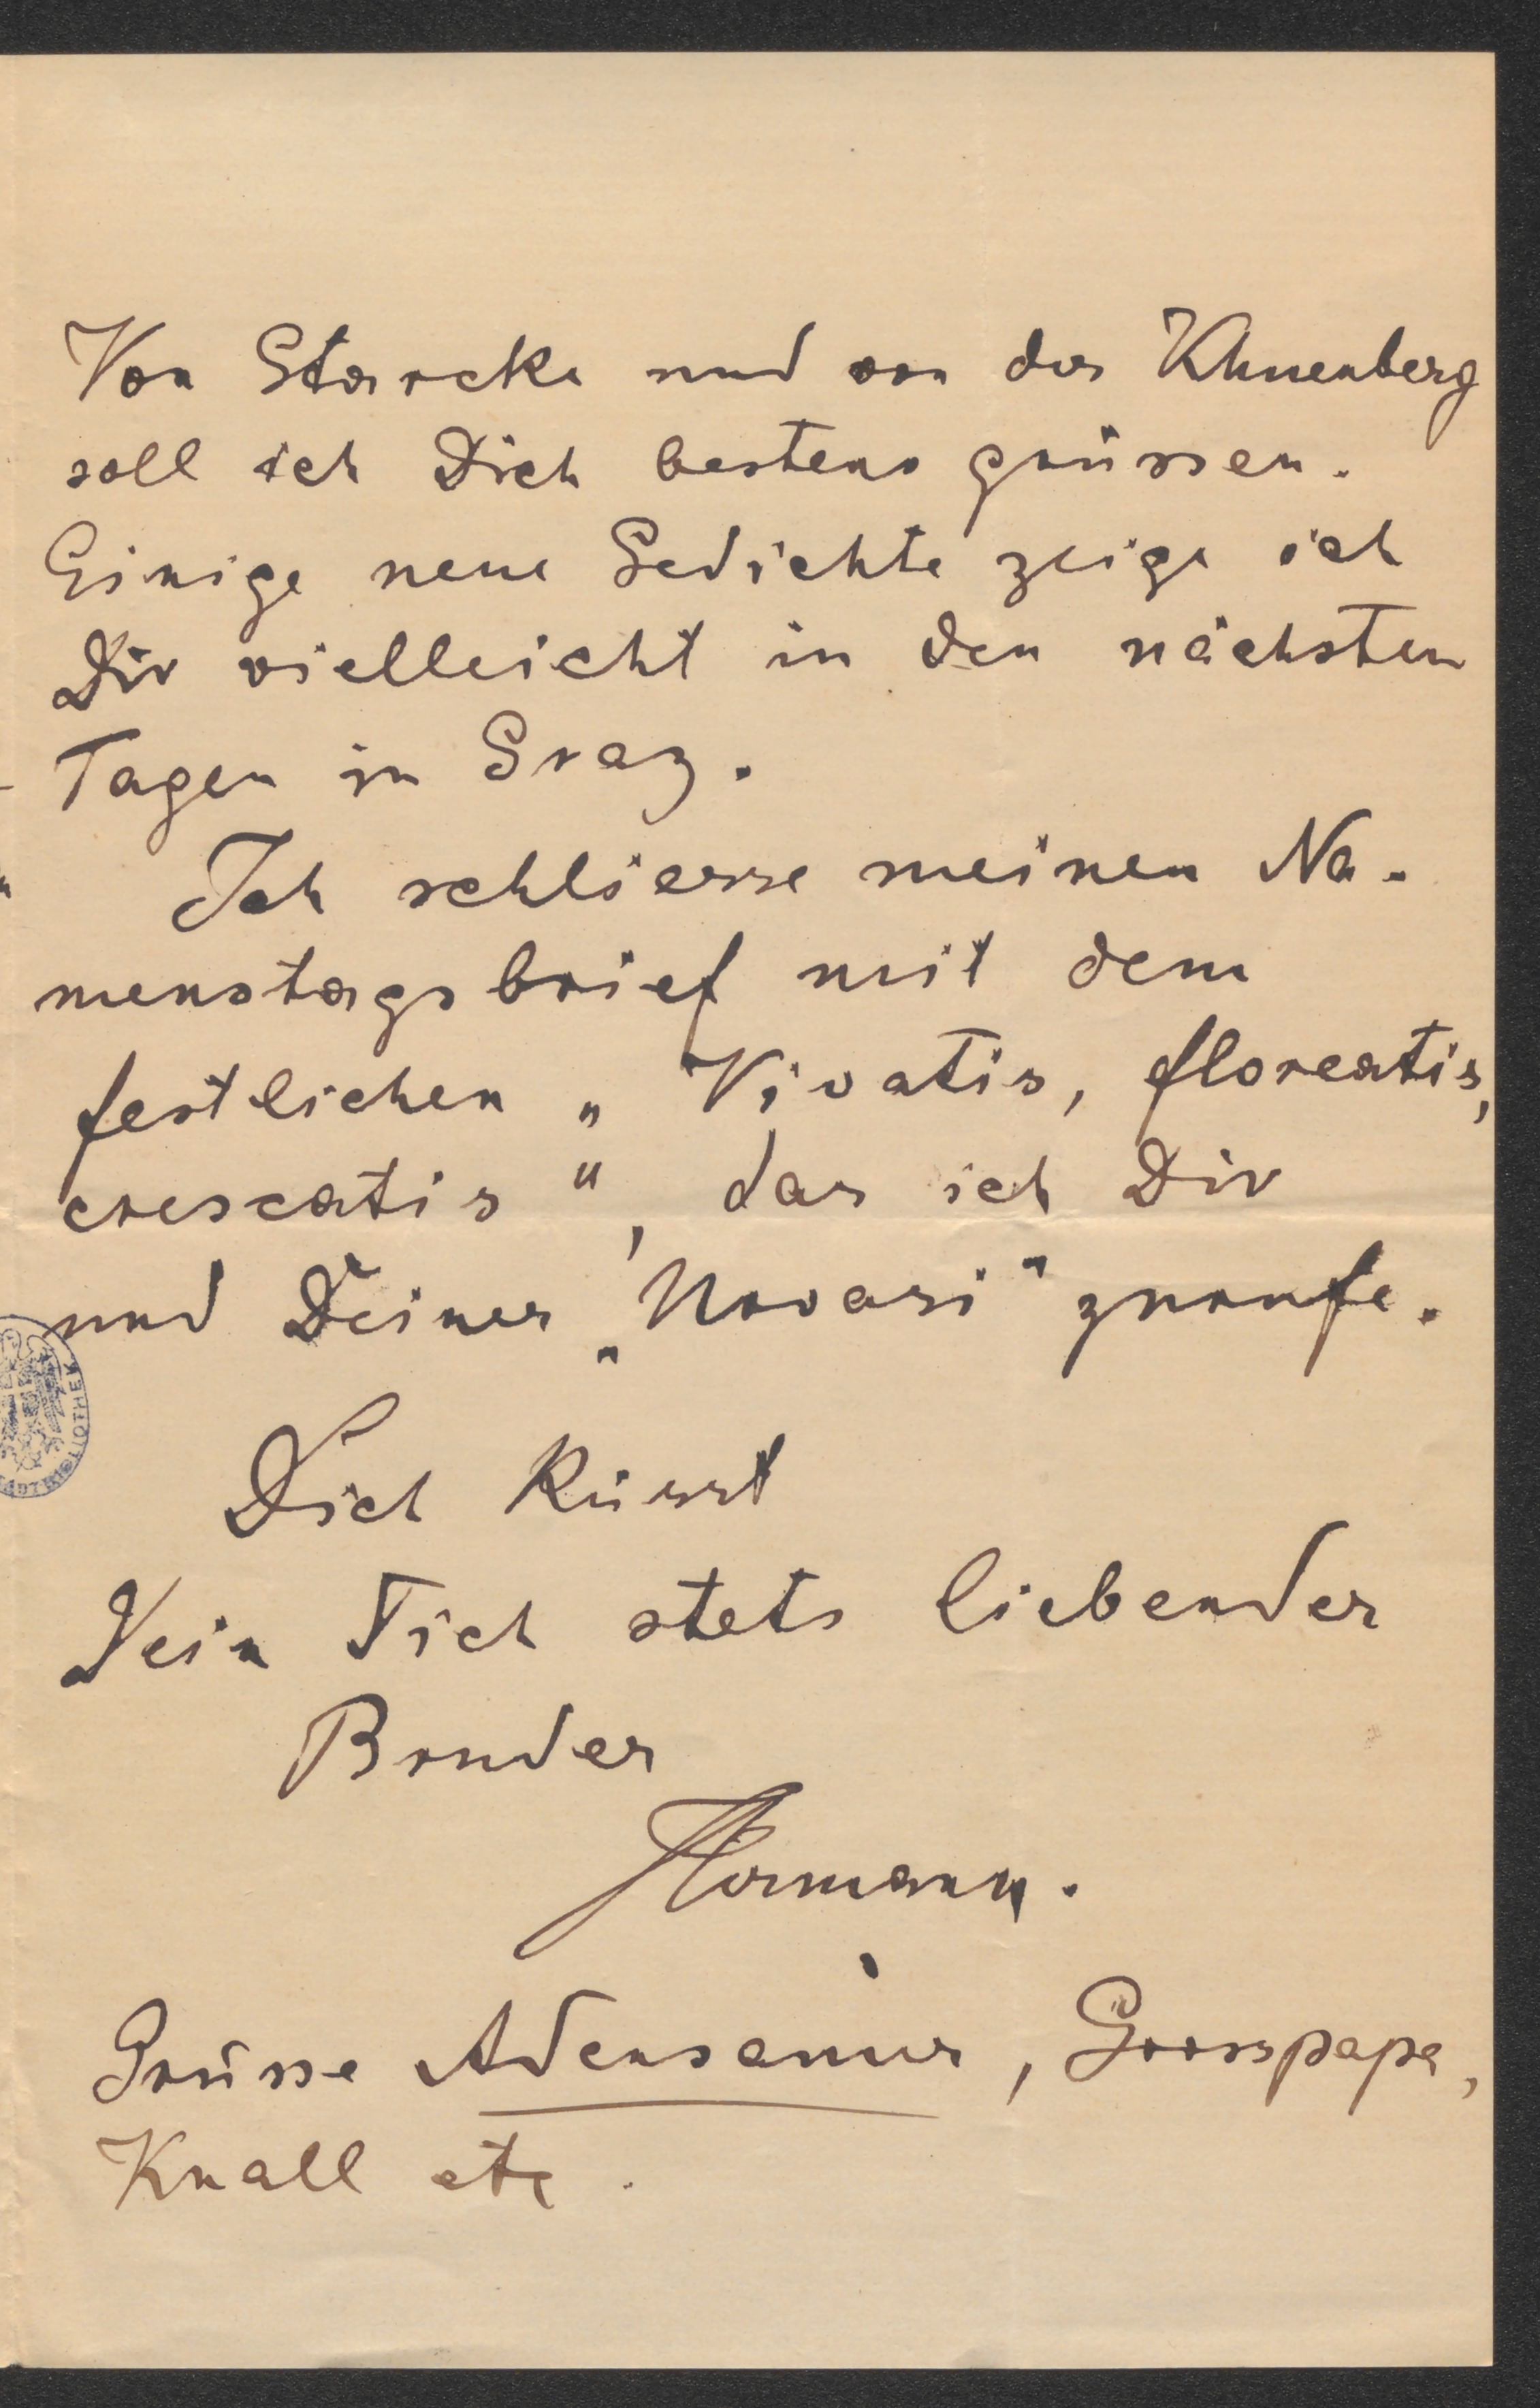 Von Starcke und von der Khuenberg
soll ich Dich bestens grüssen.
Einige neue Gedichte zeige ich
Dir vielleicht in den nächsten
Tagen in Graz.
Ich schliesse meinen Na-
menstagsbrief mit dem
festlichen „Vivatis, floreatis,
crescatis“, das ich Dir
und Deiner „Novasi“ zurufe.
Dich küsst
Dein Dich stets liebender
Bruder
Hermann.
Grüsse Adensamer, Grosspapa,
Knall etc.